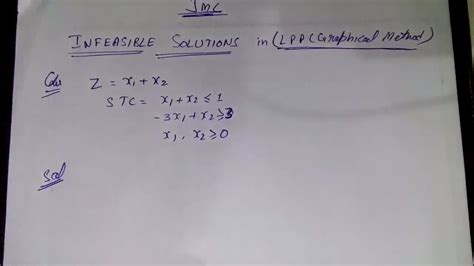 JMC
INFEASIBLE SOLUTIONS in (LPP (Graphical Method)
Qu Z = x₁ + x₂
STC = x₁ + x₂ ≤ 1
-3x₁ + x₂ ≥ 3
x₁, x₂ ≥ 0
Sol